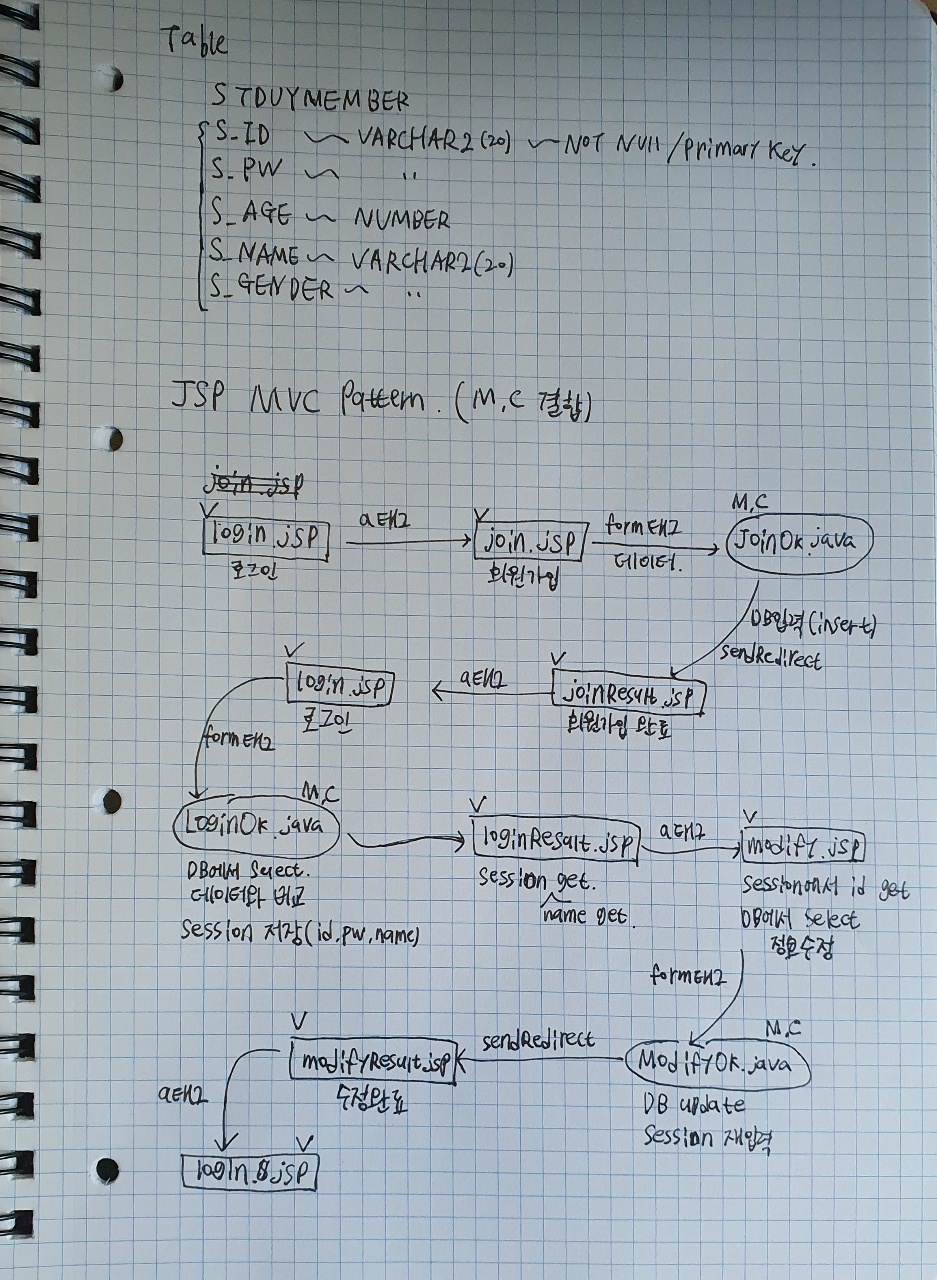 Table
STDUYMEMBER
S_ID ~ VARCHAR2(20) ~ NOT NULL / Primary Key.
S_PW ~ ''
S_AGE ~ NUMBER
S_NAME ~ VARCHAR2(20)
S_GENDER ~ ''
JSP MVC Pattern. (M,C 결합)
join.jsp
V
login.jsp
로그인
a태그
V
join.jsp
회원가입
form태그
데이터.
M,C
JoinOk.java
DB입력(insert)
sendRedirect
V
joinResult.jsp
회원가입 완료
a태그
V
login.jsp
로그인
form태그
M,C
LoginOk.java
DB에서 Select.
데이터와 비교
Session 저장(id,pw,name)
V
loginResult.jsp
Session get.
name get.
a태그
V
modify.jsp
Session에서 id get
DB에서 Select
정보수정
form태그
M,C
ModifyOk.java
DB update
Session 재입력
sendRedirect
V
modifyResult.jsp
수정완료
a태그
V
login.jsp